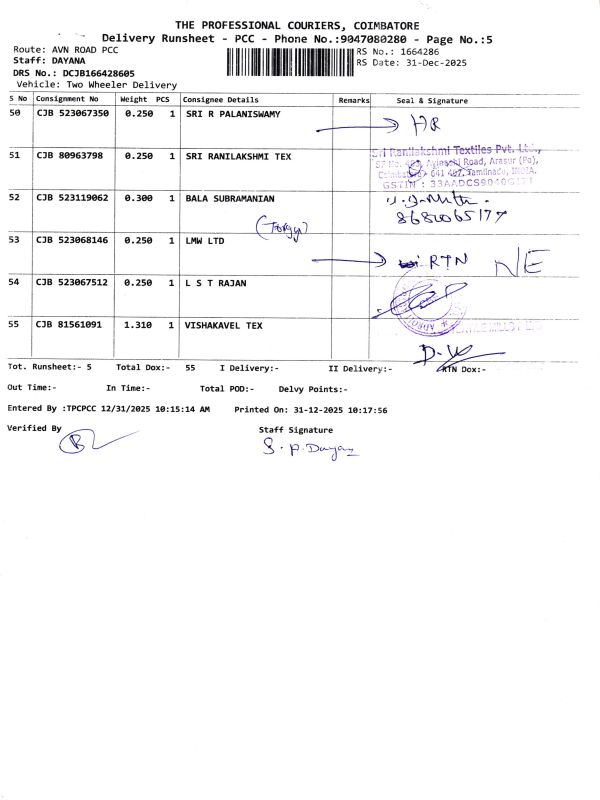 THE PROFESSIONAL COURIERS, COIMBATORE
Delivery Runsheet - PCC - Phone No.:9047080280 - Page No.:5
Route: AVN ROAD PCC
Staff: DAYANA
DRS No.: DCJB166428605
Vehicle: Two Wheeler Delivery
RS No.: 1664286
RS Date: 31-Dec-2025
S No Consignment No Weight PCS Consignee Details Remarks Seal & Signature
50 CJB 523067350 0.250 1 SRI R PALANISWAMY
51 CJB 80963798 0.250 1 SRI RANILAKSHMI TEX
Sri Ranilakshmi Textiles Pvt. Ltd.,
Avinashi Road, Arasur (Po),
Coimbatore 641 407, Tamilnadu, INDIA.
GSTIN : 33AADCS9040G1Z1
52 CJB 523119062 0.300 1 BALA SUBRAMANIAN
8680065177
53 CJB 523068146 0.250 1 LMW LTD
RTN NE
54 CJB 523067512 0.250 1 L S T RAJAN
55 CJB 81561091 1.310 1 VISHAKAVEL TEX
Tot. Runsheet:- 5 Total Dox:- 55 I Delivery:- II Delivery:- RTN Dox:-
Out Time:- In Time:- Total POD:- Delvy Points:-
Entered By :TPCPCC 12/31/2025 10:15:14 AM Printed On: 31-12-2025 10:17:56
Verified By Staff Signature
S. P. Dayana